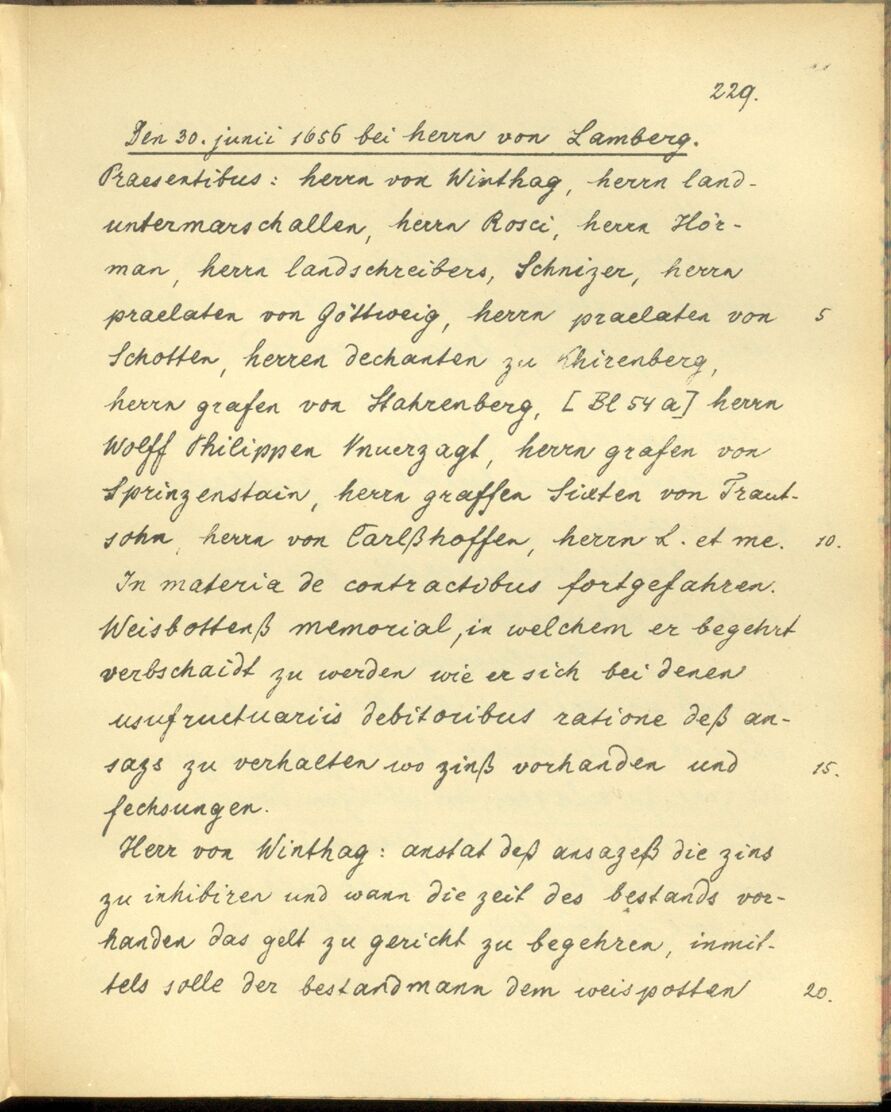 229.
Den 30. junii 1656 bei herrn von Lamberg.
Praesentibus: herrn von Winthag, herrn land-
untermarschallen, herrn Rosci, herrn Hör-
man, herrn landschreibers, Schnizer, herrn
praelaten von Göttweig, herrn praelaten von 5
Schotten, herren dechanten zu Khirenberg,
herrn grafen von Stahrenberg, [Bl 54 a] herrn
Wolff Philippen Vnuerzagt, herrn grafen von
Sprinzenstain, herrn graffen Sixten von Traut-
sohn, herrn von Carlßhoffen, herrn L. et me. 10.
In materia de contractibus fortgefahren.
Weisbottenß memorial, in welchem er begehrt
verbschaidt zu werden wie er sich bei denen
usufructuariis debitoribus ratione deß an-
sazs zu verhalten wo zinß vorhanden und 15.
fechsungen.
Herr von Winthag: anstat deß ansazeß die zins
zu inhibiren und wann die zeit des bestands vor-
handen das gelt zu gericht zu begehren, inmit-
tels solle der bestandmann dem weispotten 20.